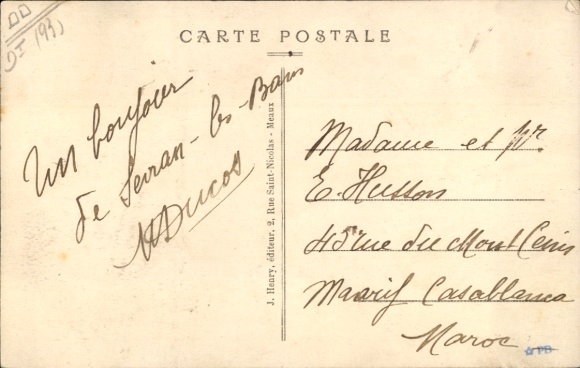 CARTE POSTALE
Un bonjour
de Sevran-les-Bains
Ducos
J. Henry, éditeur, 2, Rue Saint-Nicolas - Meaux
Madame et Mr
E. Husson
43 rue du Mont Cenis
Maarif Casablanca
Maroc
PB